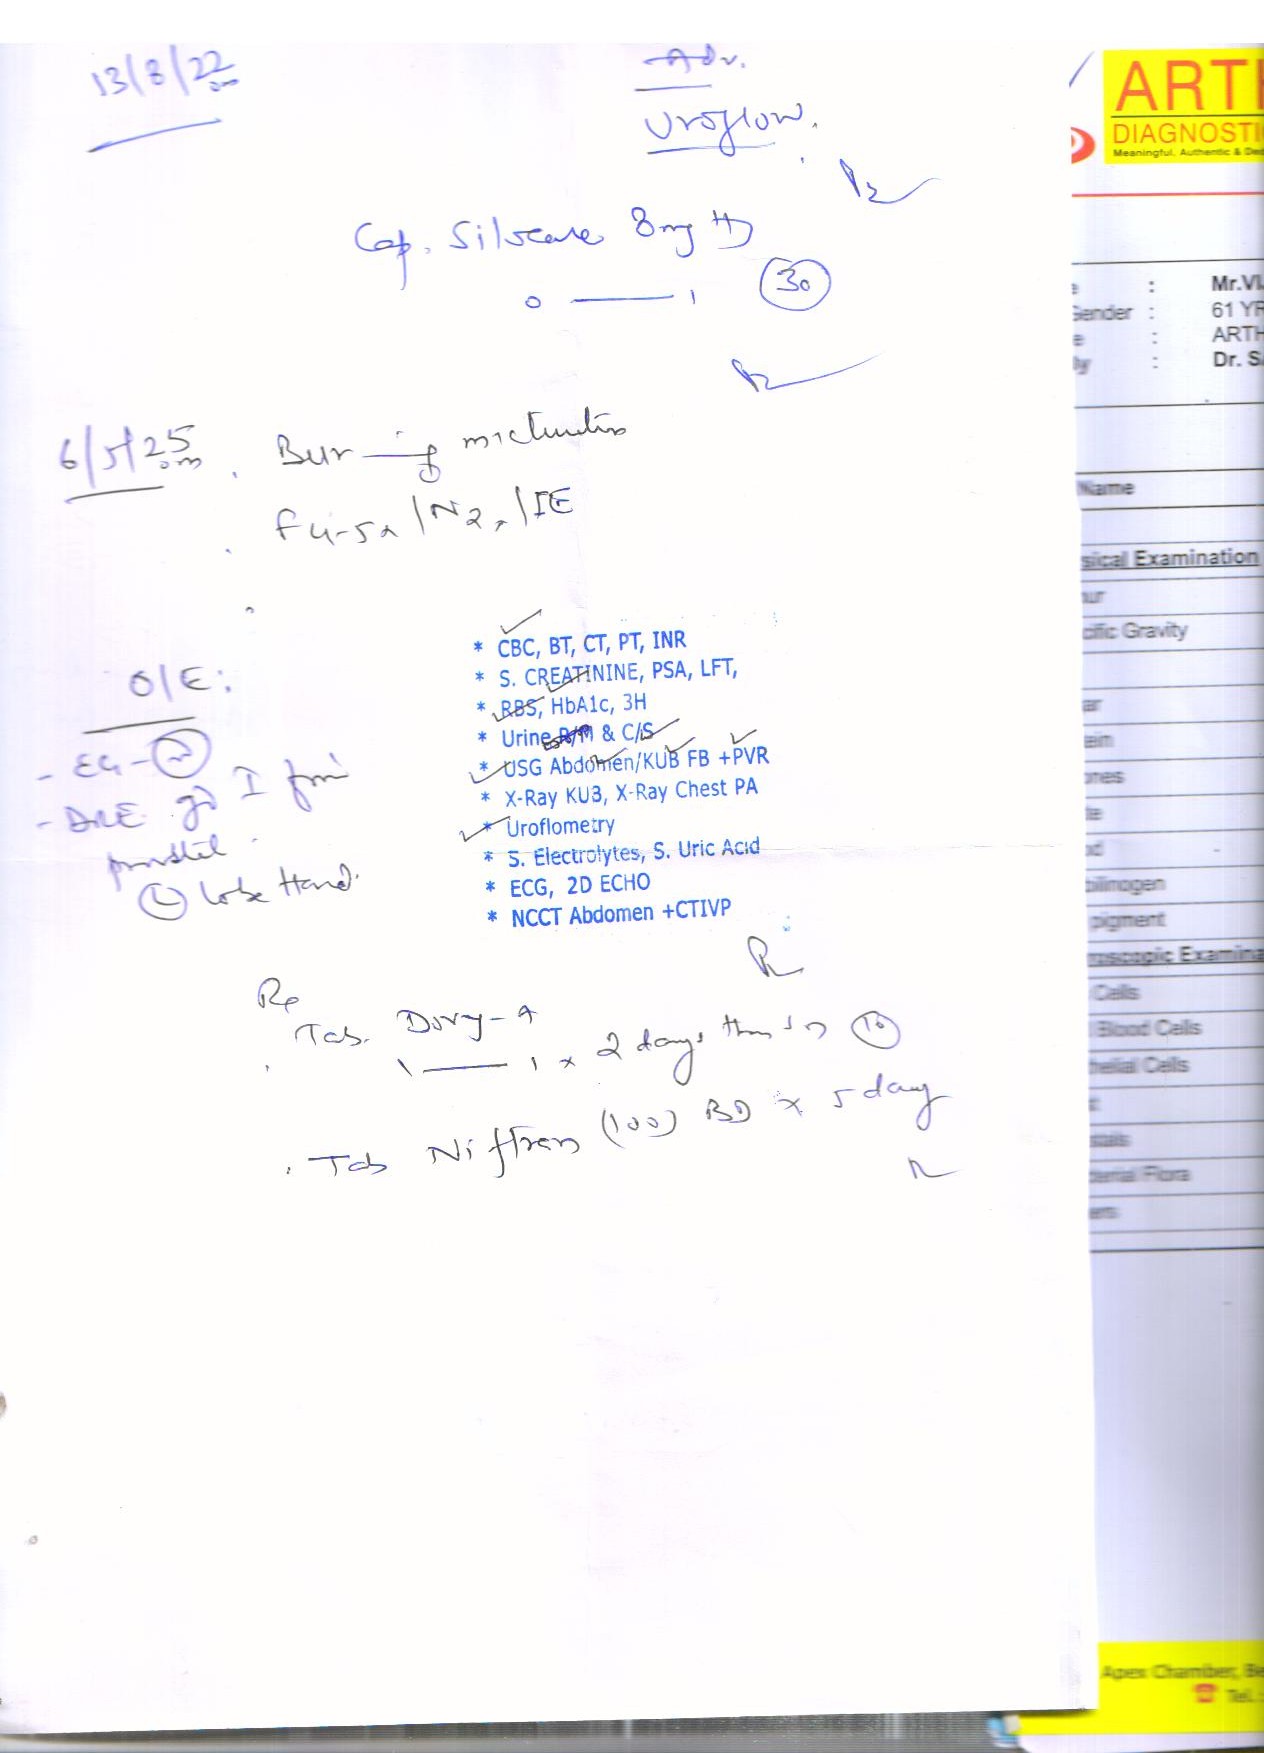 13/8/22
Adv.
Uroflow.
Cap. Silocare 8mg HD
0 — 1 30
6/5/25 . Burning micturition
. F4-5x/N2x/IE
* CBC, BT, CT, PT, INR
* S. CREATININE, PSA, LFT,
* RBS, HbA1c, 3H
* Urine R/M & C/S
* USG Abdomen/KUB FB +PVR
* X-Ray KUB, X-Ray Chest PA
* Uroflometry
* S. Electrolytes, S. Uric Acid
* ECG, 2D ECHO
* NCCT Abdomen +CTIVP
O/E:
- EG -
- DRE gr I firm
prostate
L lobe Hard.
Rx
. Tab.
1 — 1 x 2 days then 10
. Tab Niftran (100) BD x 5 day
ARTH
DIAGNOSTI
Meaningful, Authentic & Ded
: Mr.VI
Gender : 61 YR
: ARTH
By : Dr. S
Name
sical Examination
ur
cific Gravity
ar
ein
ones
le
od
bilinogen
pigment
roscopic Examina
Cells
Blood Cells
thelial Cells
t
stals
cterial Flora
ers
Apex Chamber, Be
Tel.: